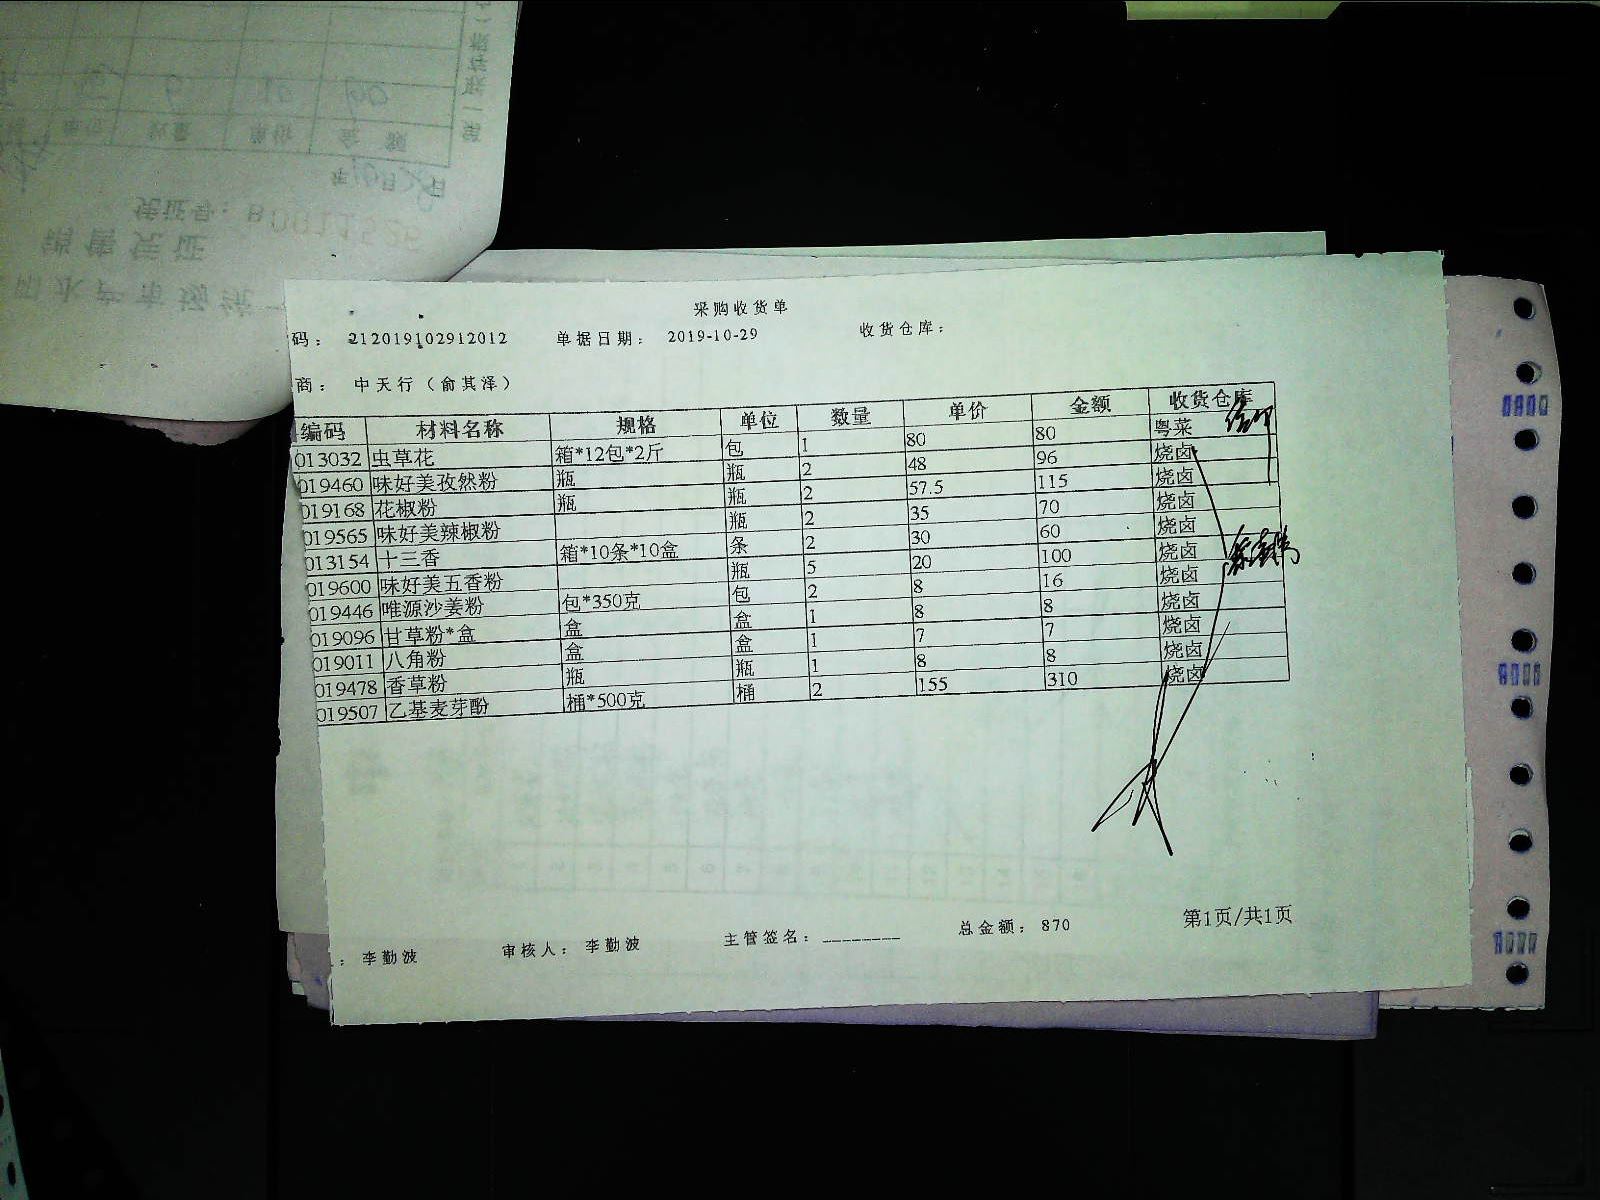 采购收货单
码： 212019102912012 单据日期： 2019-10-29 收货仓库：
商： 中天行（俞其泽）
编码 材料名称 规格 单位 数量 单价 金额 收货仓库
013032 虫草花 箱*12包*2斤 包 1 80 80 粤菜
019460 味好美孜然粉 瓶 瓶 2 48 96 烧卤
019168 花椒粉 瓶 瓶 2 57.5 115 烧卤
019565 味好美辣椒粉 瓶 2 35 70 烧卤
013154 十三香 箱*10条*10盒 条 2 30 60 烧卤
019600 味好美五香粉 瓶 5 20 100 烧卤
019446 唯源沙姜粉 包*350克 包 2 8 16 烧卤
019096 甘草粉*盒 盒 盒 1 8 8 烧卤
019011 八角粉 盒 盒 1 7 7 烧卤
019478 香草粉 瓶 瓶 1 8 8 烧卤
019507 乙基麦芽酚 桶*500克 桶 2 155 310 烧卤
： 李勤波 审核人： 李勤波 主管签名：________ 总金额： 870 第1页/共1页